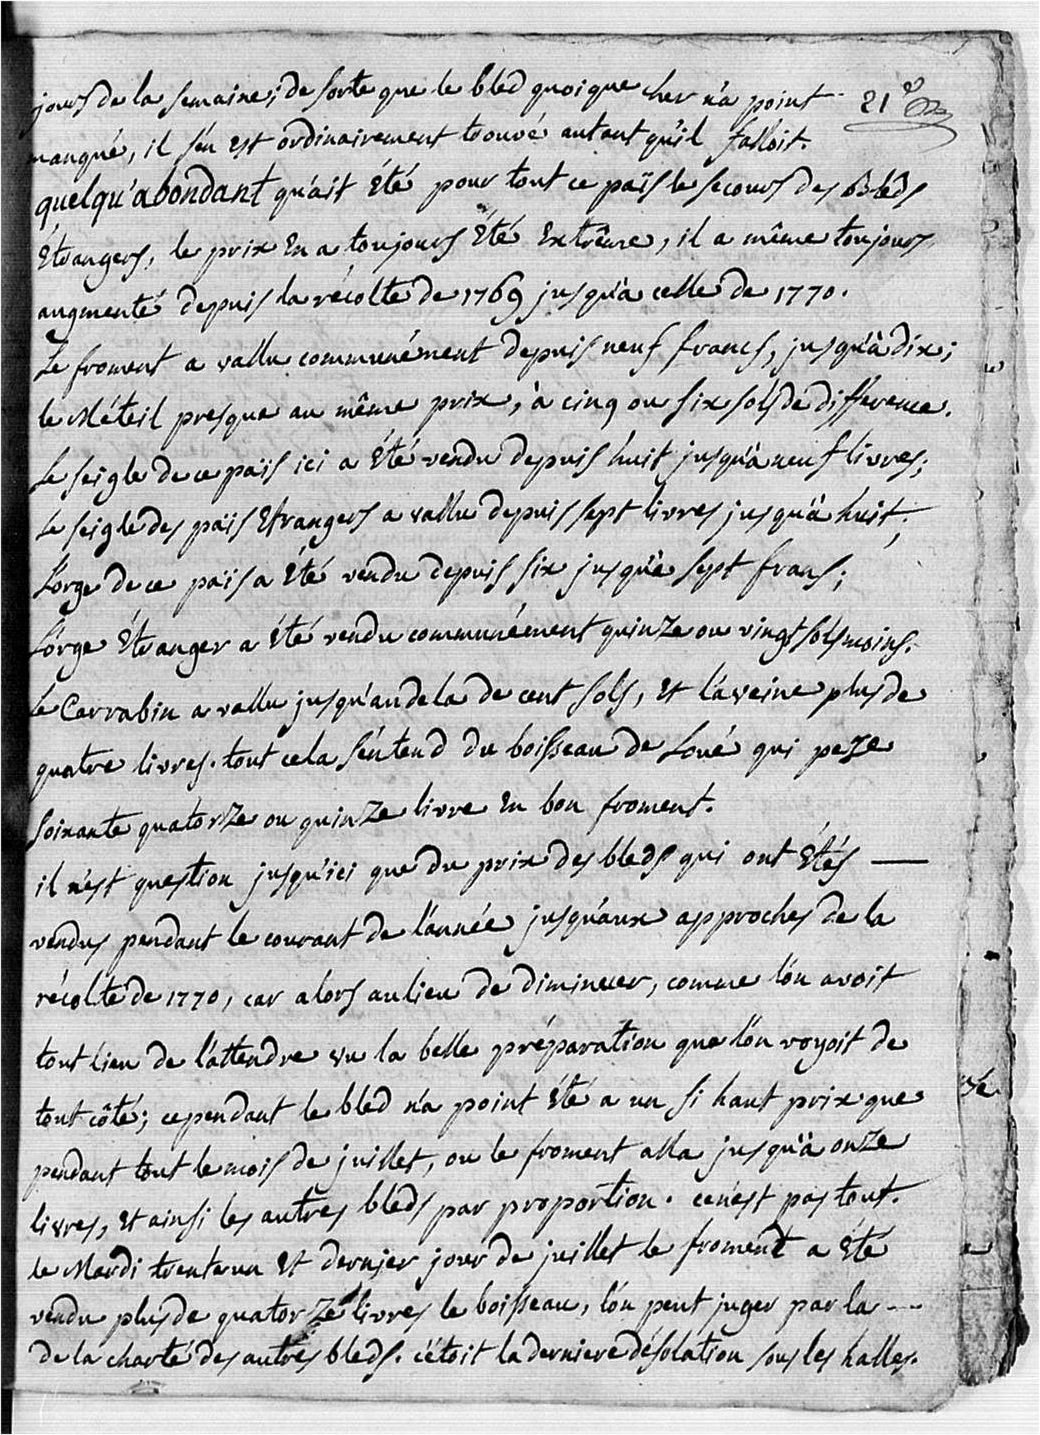 jours de la semaine; de sorte que le bled quoique cher n'a point 21e
manqué, il s'en est ordinairement trouvé autant qu'il falloit.
quelqu'abondant qu'ait été pour tout ce païs le secours des bleds
étrangers, le prix en a toujours été extrême, il a même toujours
augmenté depuis la récolte de 1769 jusqu'à celle de 1770.
Le froment a vallu communément depuis neuf francs, jusqu'à dix;
le Méteil presque au même prix, à cinq ou six sols de difference.
Le seigle de ce païs ici a été vendu depuis huit jusqu'à neuf livres;
Le seigle des païs etrangers a vallu depuis sept livres jusqu'à huit;
L'orge de ce païs a été vendu depuis six jusqu'à sept frans;
L'orge étranger a été vendu communéement quinze ou vingt sols moins.
Le Carrabin a vallu jusqu'au dela de cent sols, et l'aveine plus de
quatre livres. tout cela s'entend du boisseau de Loué qui peze
soixante quatorze ou quinze livre en bon froment.
il n'est question jusqu'ici que du prix des bleds qui ont étés —
vendus pendant le courant de l'année jusqu'aux approches de la
récolte de 1770, car alors au lieu de diminuer, comme l'on avoit
tout lieu de l'attendre vu la belle préparation que l'on voyoit de
tout côté; cependant le bled n'a point été a un si haut prix que
pendant tout le mois de juillet, ou le froment alla jusqu'à onze
livres, et ainsi les autres bleds par proportion. ce n'est pas tout.
le Mardi trente un et dernier jour de juillet le froment a été
vendu plus de quatorze livres le boisseau, l'on peut juger par la ---
de la charté des autres bleds. c'étoit la derniere désolation sous les halles.